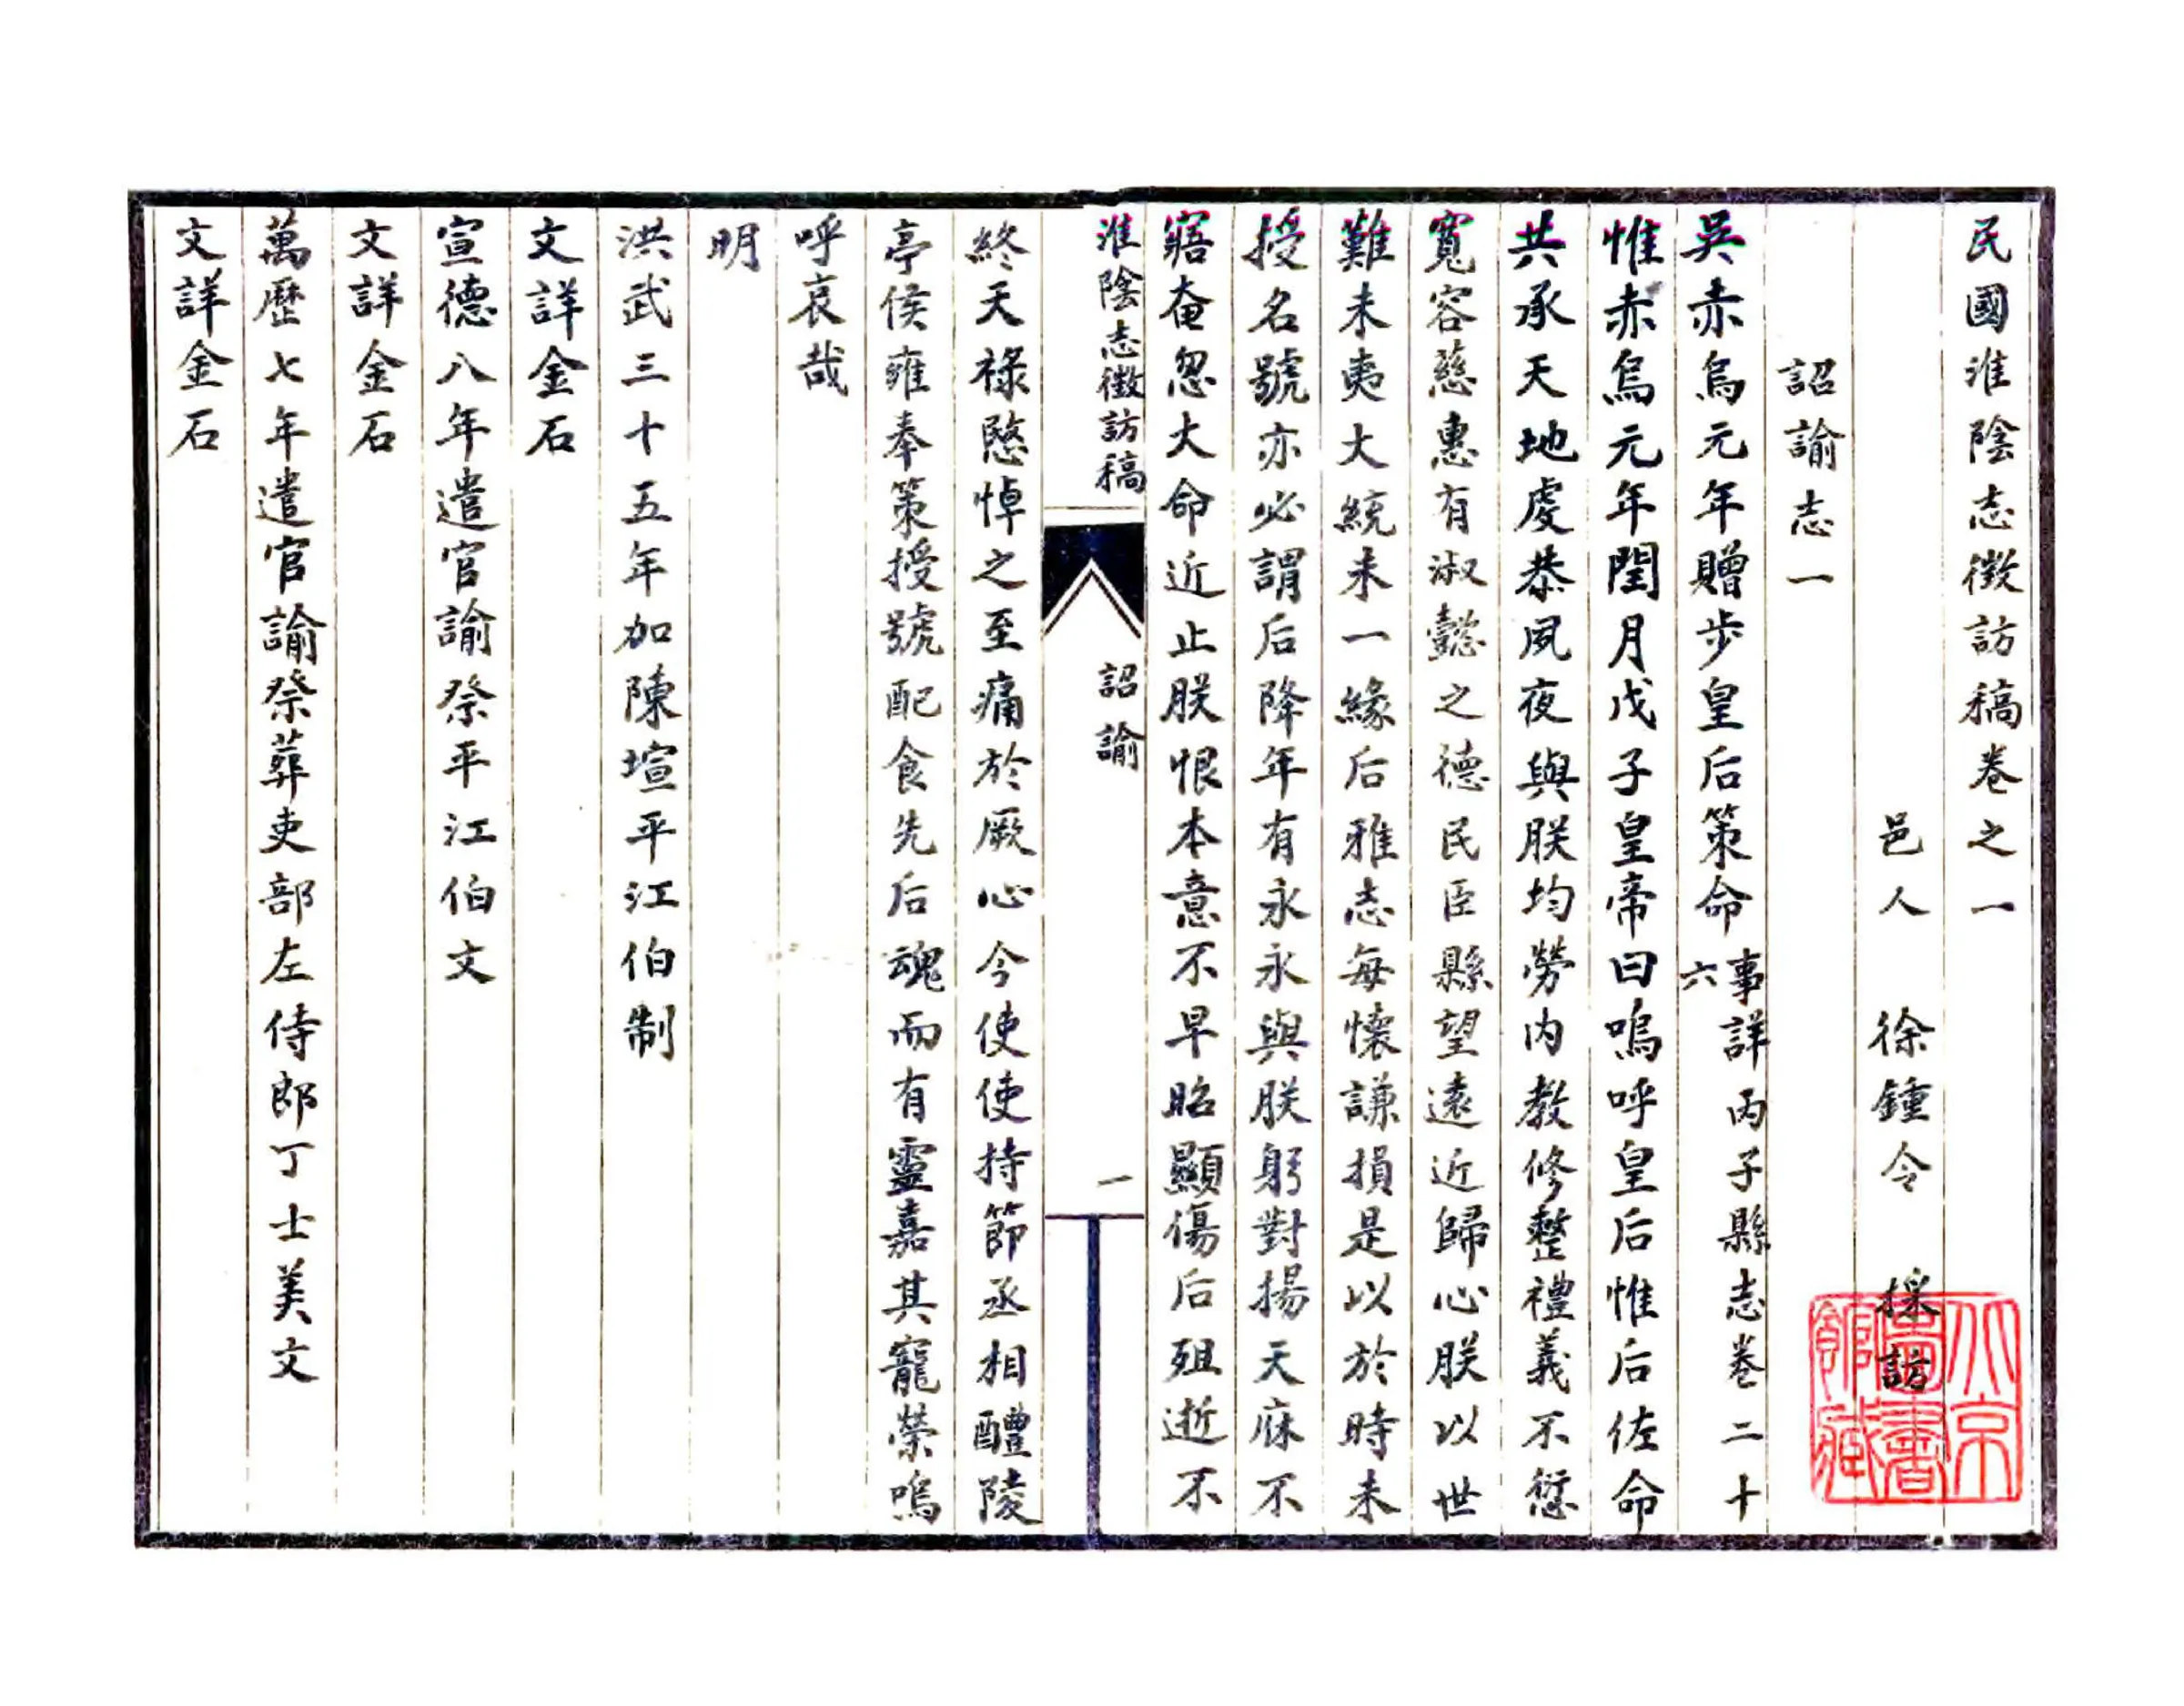 民國淮陰志徵訪稿卷之一
邑人 徐鍾令 採訪
詔諭志一
吳赤烏元年贈步皇后策命 事詳丙子縣志卷二十六
惟赤烏元年閏月戊子皇帝曰嗚呼皇后惟后佐命
共承天地虔恭夙夜與朕均勞內教修整禮義不愆
寬容慈惠有淑懿之德民臣縣望遠近歸心朕以世
難未夷大統未一緣后雅志每懷謙損是以於時未
授名號亦必謂后降年有永永與朕躬對揚天庥不
寤奄忽大命近止朕恨本意不早昭顯傷后殂逝不
淮陰志徵訪稿 詔諭 一
終天祿愍悼之至痛於厥心今使使持節丞相醴陵
亭侯雍奉策授號配食先后魂而有靈嘉其寵榮嗚
呼哀哉
明
洪武三十五年加陳瑄平江伯制
文詳金石
宣德八年遣官諭祭平江伯文
文詳金石
萬歷七年遣官諭祭葬吏部左侍郎丁士美文
文詳金石
北京圖書館藏